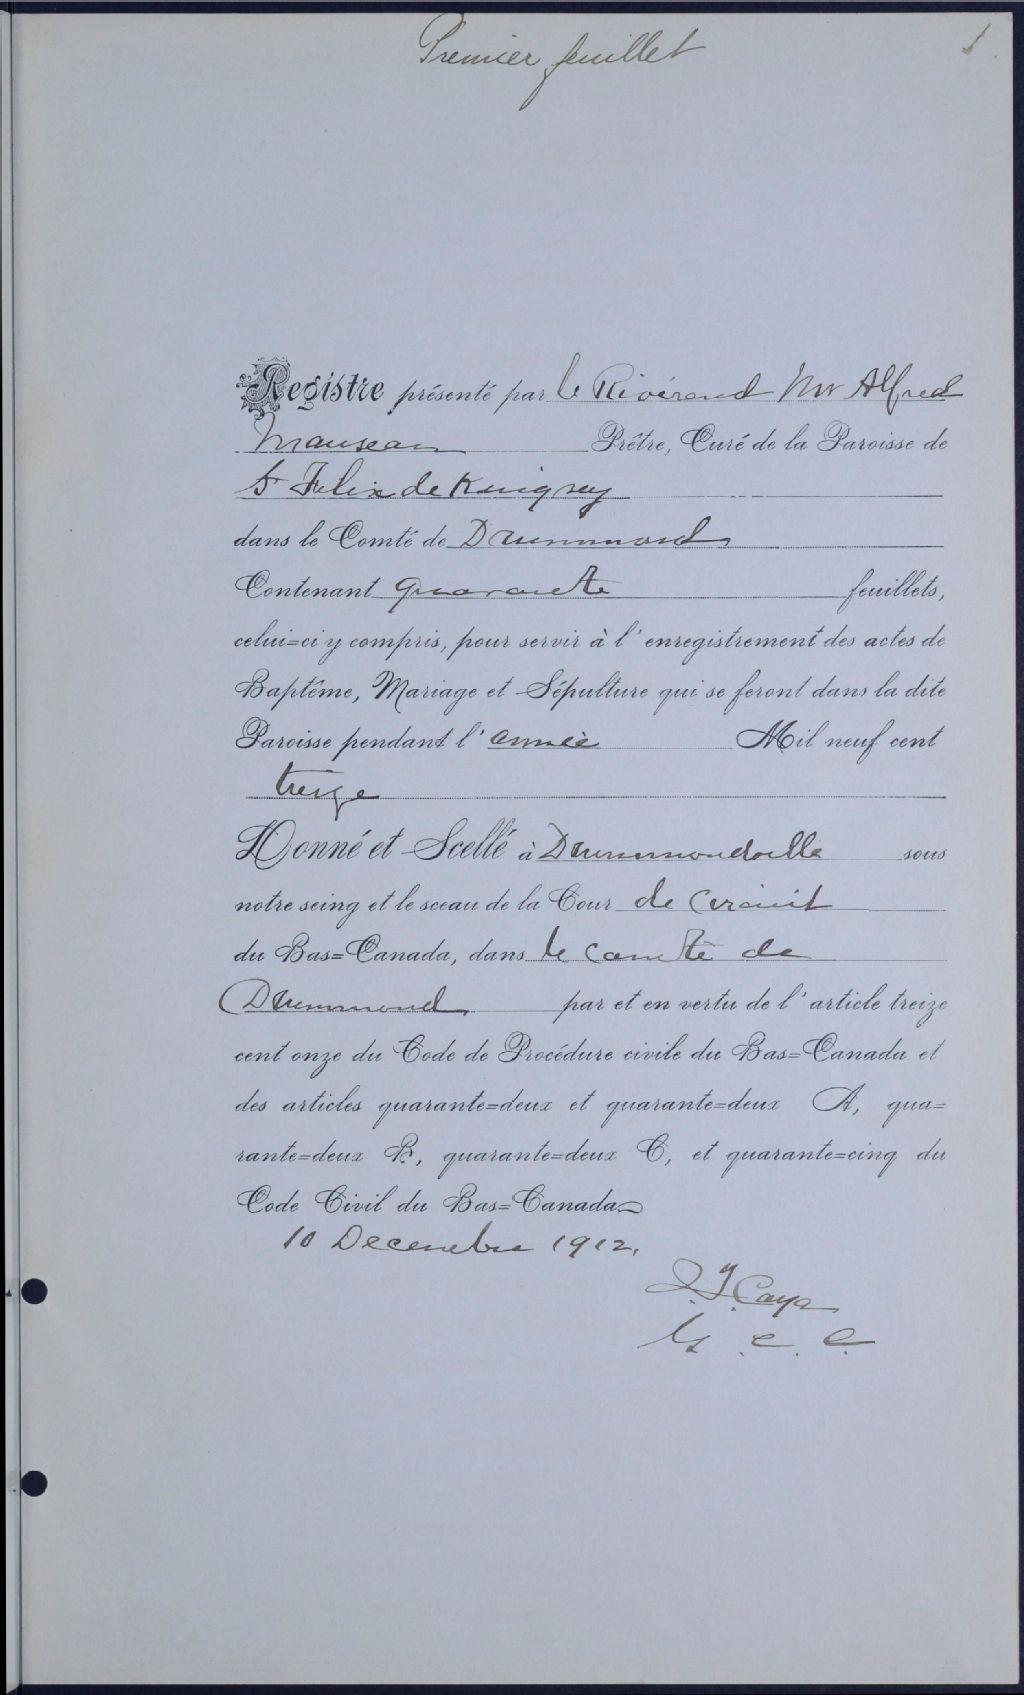 Premier feuillet
1
Registre présenté par le Révérend Mr Alfred
Manseau Prêtre, Curé de la Paroisse de
St Felix de Kingsey
dans le Comté de Drummond
Contenant quarante feuillets,
celui=ci y compris, pour servir à l'enregistrement des actes de
Baptême, Mariage et Sépulture qui se feront dans la dite
Paroisse pendant l'année Mil neuf cent
treize
Donné et Scellé à Drummondville sous
notre seing et le sceau de la Cour de Circuit
du Bas=Canada, dans le comté de
Drummond par et en vertu de l'article treize
cent onze du Code de Procédure civile du Bas=Canada et
des articles quarante=deux et quarante=deux A, qua=
rante=deux B, quarante=deux C, et quarante=cinq du
Code Civil du Bas=Canada
10 Decembre 1912.
J. Caya
C. C.